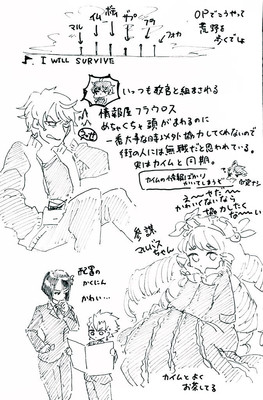 OPでこうやって
荒野を
歩くでしょ
マル
カイム
桧
ザブ
フォカ
♪ I WILL SURVIVE
いっつも教官と組まされる
情報屋フラウロス
めちゃくちゃ頭がまわるのに
一番大事な時以外協力してくれないので
街の人には無職だと思われている。
実はカイムと同期。
カイムの情報ばかり
かいてしまうど
え〜せた〜
かわいくないなら
協力したく
な〜い
参謀
マルバス
ちゃん
配置の
かくにん
かわい…
カイムとよく
お茶してる